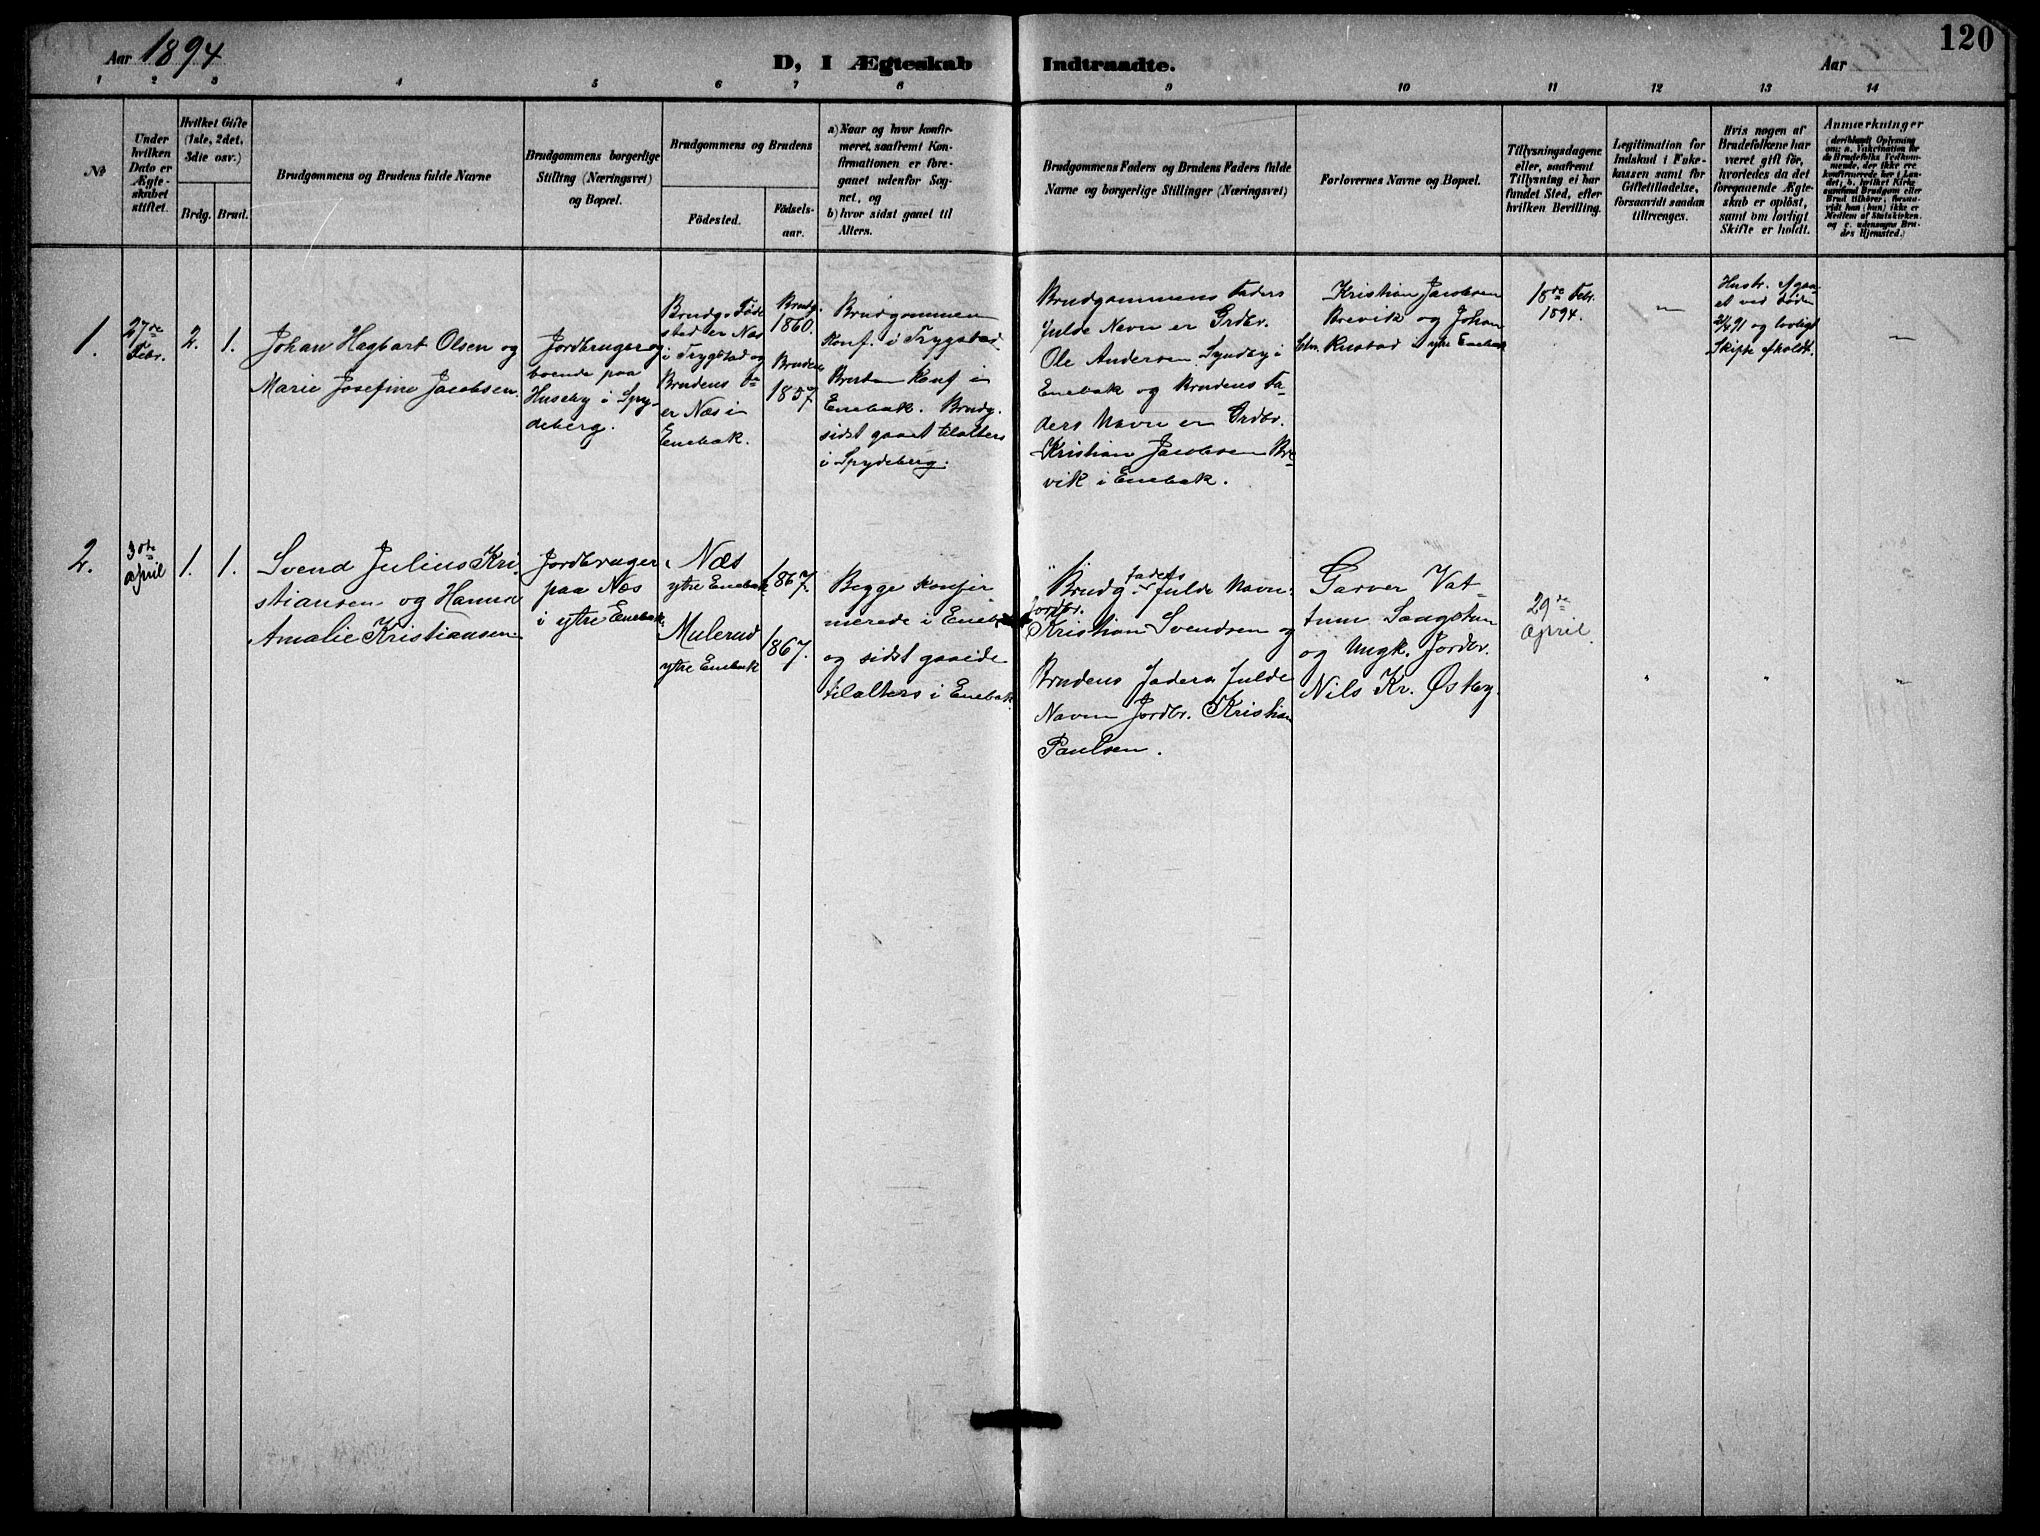 Aar 1894
D, I Ægteskab Indtraadte.
Aar
120
1 2 3 4 5 6 7 8 9 10 11 12 13 14
No
Under
hvilken
Dato er
Ægte-
skabet
stiftet.
Hvilket Gifte
(1ste, 2det,
3die osv.)
Brdg. Brud.
Brudgommens og Brudens fulde Navne
Brudgommens borgerlige
Stilling (Næringsvei)
og Bopæl.
Brudgommens og Brudens
Födested.
Födsels-
aar.
a) Naar og hvor konfir-
meret, saafremt Kon-
firmationen er fore-
gaaet udenfor Sog-
net, og
b) hvor sidst gaaet til
Alters.
Brudgommens Faders og Brudens Faders fulde
Navne og borgerlige Stillinger (Næringsvei)
Forlovernes Navne og Bopæl.
Tillysningsdagene
eller, saafremt
Tillysning ei har
fundet Sted, efter
hvilken Bevilling.
Legitimation for
Indskud i Enke-
kassen samt for
Giftetilladelse,
forsaavidt saadan
tiltrænges.
Hvis nogen af
Brudefolkene har
været gift för,
hvorledes da det
foregaaende Ægte-
skab er oplöst,
samt om lovligt
Skifte er holdt.
Anmærkninger
(deriblandt Oplysning
om: a. Vakcination for
de Brudefolks Vedkom-
mende, der ikke ere
konfirmerede her i Lan-
det; b. hvilket Kirke
samfund Brudgom eller
Brud tilhörer, forsaa-
vidt han (hun) ikke er
Medlem af Statskirken.
og c. udensogns Bru-
des Hjemsted.)
1.
27de
Febr.
2. 1.
Johan Hagbart Olsen og
Marie Josefine Jacobsen
Jordbruger og
boende paa
Huseby i Spy-
deberg.
Brudg. Föde
sted er Næs
i Trygstad og
Brudens do
er Næs i
Enebak.
Brudg.
1860.
Brudens
1857.
Brudgommen
Konf. i Trygstad
Bruden Konf i
Enebak. Brudg.
sidst gaaet tilalters
i Spydeberg.
Brudgommens Faders
fulde Navn er Grdbr.
Ole Andersen Syndby i
Enebak og Brudens Fa-
ders Navn er Grdbr.
Kristian Jacobsen Bre-
vik i Enebak.
Kristian Jacobsen
Brevik og Johan
Rustad i ytre Enebak
18de Febr.
1894.
"
Hustr. Afgaa
et ved Döden
91 og lovligt
Skifte afholdt.
"
2.
30te
April
1. 1.
Svend Julius Kri-
stiansen og Hanna
Amalie Kristiansen
Jordbruger
paa Næs
i ytre Enebak.
Næs
ytre Enebak
Mulerud
ytre Enebak
1867.
1867.
Begge Konfir-
merede i Enebak
og sidst gaaede
tilalters i Enebak.
Brudg faders fulde Navn:
Jordbr.
Kristian Svendsen og
Brudens Faders fulde
Navn Jordbr. Kristian
Paulsen.
Garver Vat-
tum Saagstun
og Ungk. Jordbr.
Nils Kr. Østby.
29de
April.
"
"
"